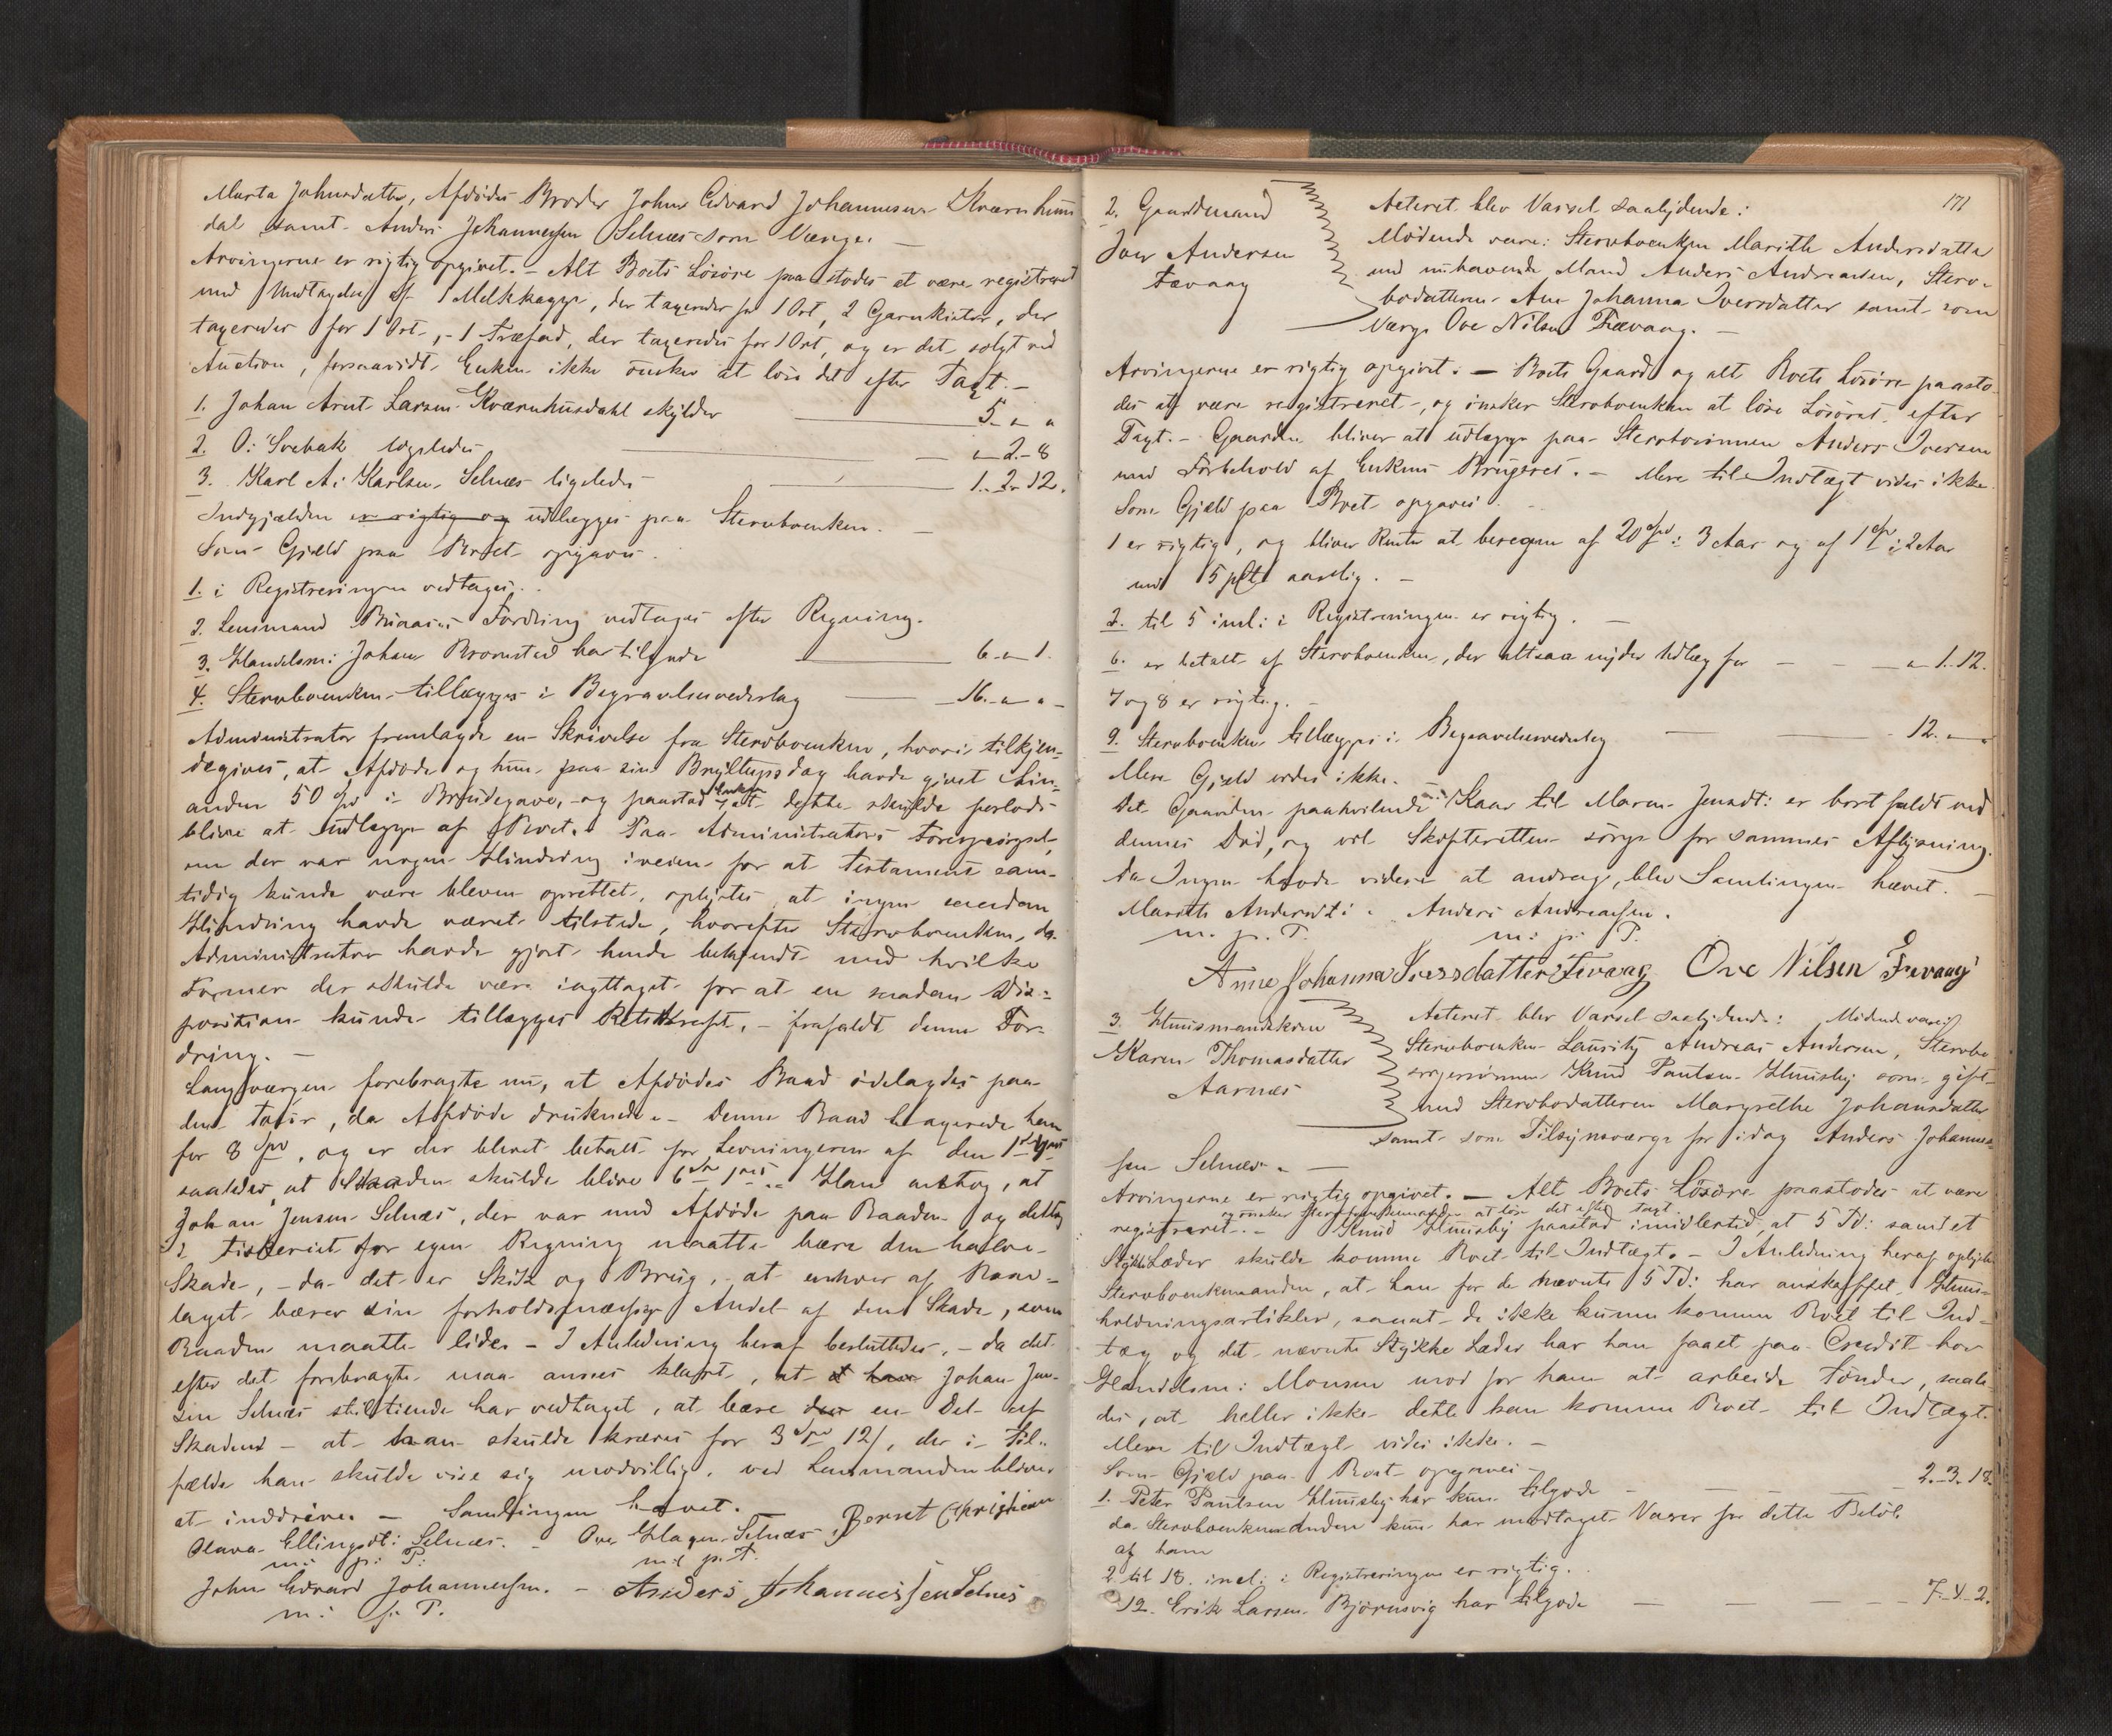 Marta Johnsdatter, Afdødes Broder Johan Edvard Johannesen Kværnhuus
dal samt Anders Johannesen Selnæs som Værge.
Arvingerne er rigtig opgivet. – Alt Boets Løsøre paastodes at være registreret
med Undtagelse af 1 Melkkagge, der taxeredes for 1 Ort, 2 Garnkister, der
taxeredes for 1 Ort, – 1 Træfad, der taxeredes for 1 Ort, og er det solgt ved
Auction, forsaavidt Enken ikke ønsker at løse det efter Taxt. –
1. Johan Arnt Larsen Kværnhusdahl skylder 5 „ „
2. O: Svebak ligeledes „ 2 – 8
3. Karl A: Karlsen Selnæs ligeledes 1. 2. 12.
Indgjælden er rigtig og udlægges paa Stervboenken. –
Som Gjæld paa Boet opgaves.
1. i Registreringen vedtages.
2. Lensmand Buaas's Fordring vedtages efter Regning.
3. Handelsm: Johan Bromstad har tilgode 6 „ 1
4. Stervboenken tillægges i Begravelsesvederlag 16 „ „
Administrator fremlagde en Skrivelse fra Stervboenken, hvori tilkjen-
degives, at Afdøde og hun paa sin Bryllupsdag havde givet hin-
anden 50 Spd i Brudegave, og paastod Enken at dette skulde forlods
blive at udlægge af Boet. Paa Administrators Forespørgsel,
om der var nogen Hindring iveien for at Testament sam-
tidig kunde være bleven oprettet, oplystes at ingen saadan
Hindring havde været tilstede, hvorefter Stervboenken, da
Administrator havde gjort hende bekjendt med hvilke
Former der skulde være iagttaget for at en saadan Dis-
position kunde tillægges Retskraft, – frafaldt denne For-
dring. –
Laugværgen forebragte nu, at Afdødes Baad ødelagdes paa
den Tour, da Afdøde druknede. – Denne Baad taxerede han
for 8 Spd, og er der blevet betalt for Levningerne af den 1 –
saaledes at Skaden skulde blive 6 – 1 – . Han antog, at
Johan Jensen Selnæs, der var med Afdøde paa Baaden og deltog
i Fiskeriet for egen Regning maatte bære den halve
Skade, – da det er Skik og Brug, at enhver af Baad-
laget bærer sin forholdsmæssige Andel af den Skade, som
Baaden maatte lide. – I Anledning heraf besluttedes, – da det
efter det forebragte maa ansees klart, at et han Johan Jen-
sen Selnæs stiltiende har vedtaget, at bære den en Del af
Skaden – at han skulde kræves for 3 Spd 12 s, der i Til-
fælde han skulde vise sig uvillig, ved Lensmanden bliver
at inddrive. – Samlingen hævet.
Olava Ellingsdt: Selnæs. – Ove Hagen Selnæs. Bernt Christian
m: p: P: m: p: P.
John Edvard Johannessen. – Anders Johannessen Selnes
m: p: P.
171
2. Gaardmand
Iver Andersen
Fævaag
Acteret blev Varsel saalydende:
Mødende vare: Stervboenken Marith Andersdatter
med nuhavende Mand Anders Andreassen, Sterv-
bodatteren Ane Johanna Iversdatter samt som
Værge Ove Nilsen Fævaag. –
Arvingerne er rigtig opgivet. – Boets Gaard og alt Boets Løsøre paasto-
des at være registreret, og ønsker Stervboenken at løse Løsøret efter
Taxt. – Gaarden bliver at udlægge paa Stervbosønnen Anders Iversen
med Forbehold af Enkens Brugsret. – Mere til Indtægt vides ikke.
Som Gjæld paa Boet opgaves.
1 er rigtig, og bliver Renter at beregne af 20 Spd: 3 Aar og af 1 Spd: 2 Aar
med 5 pCt aarlig. –
2. til 5 incl: i Registreringen er rigtig. –
6. er betalt af Stervboenken, der altsaa nyder Udlæg for „ 1. 12.
7 og 8 er rigtig. –
9. Stervboenken tillægges i Begravelsesvederlag 12. „ „
Mere Gjæld vides ikke.
Det Gaarden paahvilende Kaar til Maren Jensdt: er bortfaldt ved
dennes Død, og vil Skifteretten sørge for sammes Aflysning.
Da Ingen havde videre at andrage, blev Samlingen hævet. –
Marith Andersdt: Anders Andreassen.
m. p. P. m: p: P.
Anne Johanna Iversdatter Fevaag Ove Nilsen Fævaag
3. Huusmandskone
Karen Thomasdatter
Aarnæs
Acteret blev Varsel saalydende: Mødende vare
Stervboenkem. Lauritz Andreas Andersen, Stervbo
svigersønnen Knud Paulsen Huusby som gift
med Stervbodatteren Margrethe Johansdatter
samt som Tilsynsværge for idag Anders Johannes-
sen Selnæs. –
Arvingerne er rigtig opgivet. – Alt Boets Løsøre paastodes at være
og ønsker Stervboenkemanden at løse det efter Taxt.
registreret. – Knud Huusby paastod imidlertid, at 5 Td: samt et
Stykke Læder skulde komme Boet til Indtægt. – I Anledning heraf oplyste
Stervboenkemanden, at han for de nævnte 5 Td: har anskaffet Huus-
holdningsartikler, saaat de ikke kunne komme Boet til Ind-
tæg og det nævnte Stykke Læder har han faaet paa Credit hos
Handelsm: Monsen mod for ham at arbeide Tønder, saale-
des, at heller ikke dette kan komme Boet til Indtægt.
Mere til Indtægt vides ikke. –
Som Gjæld paa Boet opgaves –
1. Peter Paulsen Huusby har kun tilgode 2. 3. 18.
da Stervboenkemanden kun har modtaget Varer for dette Beløb
af ham
2 til 18. incl: i Registreringen er rigtig.
12. Erik Larsen Bjørnsvig har tilgode 7. 4. 2.